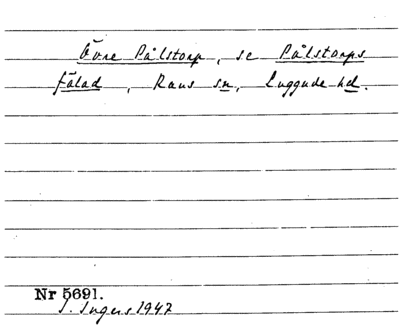 Övre Pålstorp, se Pålstorps
fälad, Raus sn, Luggude hd.
Nr 5691.
I. Ingers 1947